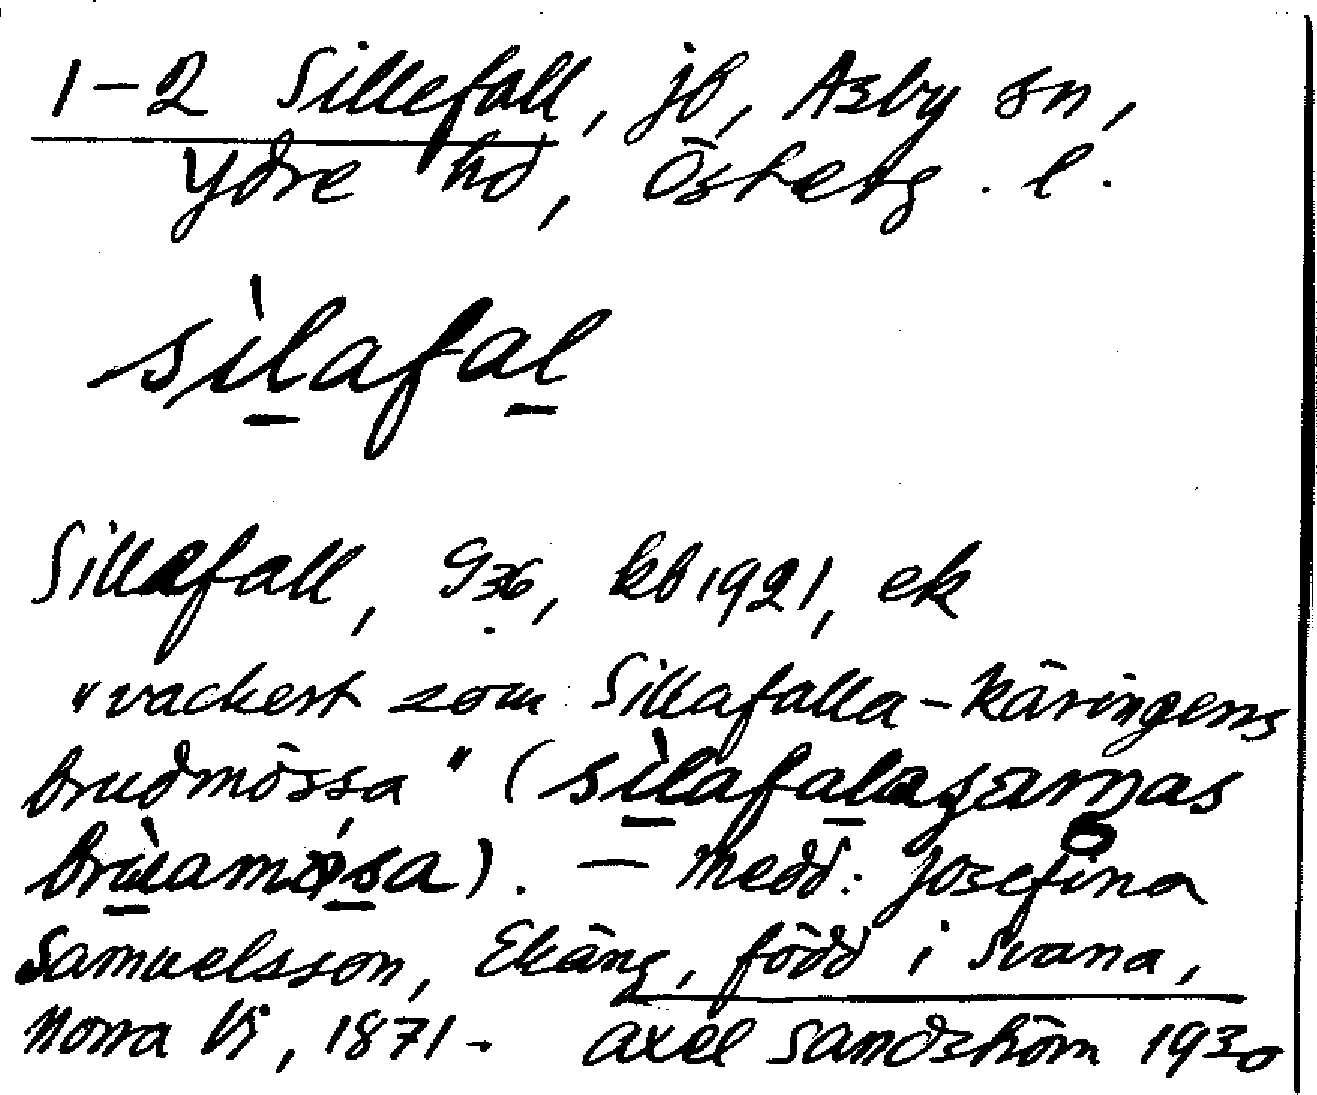 1-2 Sillefall, jb, Asby sn,
Ydre hd, Österg. l.
sìlafal
Sillafall, G36, kb 1921, ek
"vackert som Sillafalla-käringens
brudmössa" (
). — Medd: Josefina
Samuelsson, Ekäng, född i Svana,
Norra Vi, 1871. Axel Sandström 1930